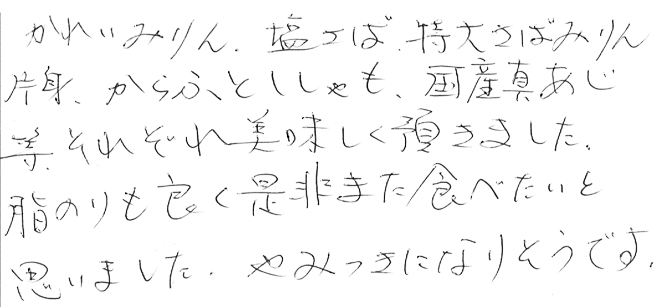 かれいみりん、塩さば、特大さばみりん
片身、からふとししゃも、国産真あじ
等、それぞれ美味しく頂きました。
脂のりも良く是非また食べたいと
思いました。やみつきになりそうです。